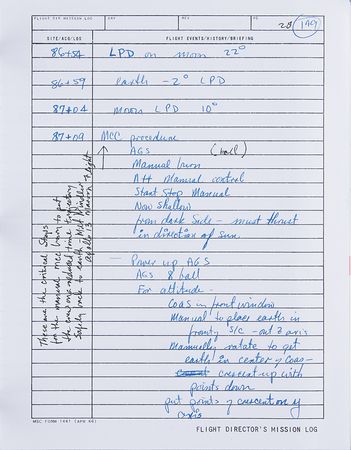 FLIGHT DIR MISSION LOG DAY REV PG
28 (199)
SITE/ACQ/LOS FLIGHT EVENTS/HISTORY/BRIEFING
86+54 LPD on moon 22°
86+59 earth -2° LPD
87+04 Moon LPD 10°
87+09 MCC procedure
AGS (ball)
Manual burn
Att Manual control
Start Stop Manual
Now shallow
from dark side - must thrust
in direction of sun.
— Power up AGS
AGS 8 ball
For attitude -
COAS in front window
Manual to place earth in
front S/C - out Z axis
Manually rotate to get
earth in center of COAS -
crescent up with
points down
put points of crescent on y
axis
These are the critical steps
for the manual mcc burn to put
the crew on a return trajectory
Safely back to earth
Apollo 13 Mission Flight
MSC FORM 1441 (APR 66)
FLIGHT DIRECTOR'S MISSION LOG